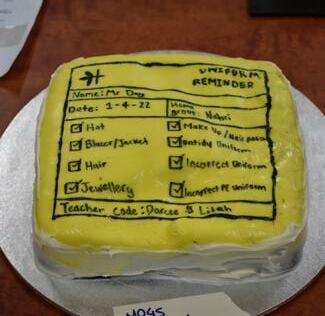 UNIFORM
REMINDER
Name: Mr Day
Date: 1-4-22
Home
group: Nahri
Hat
Make Up / Nail polish
Blazer/Jacket
untidy Uniform
Hair
Incorrect Uniform
Jewellery
Incorrect PE Uniform
Teacher code: Darcee & Libah